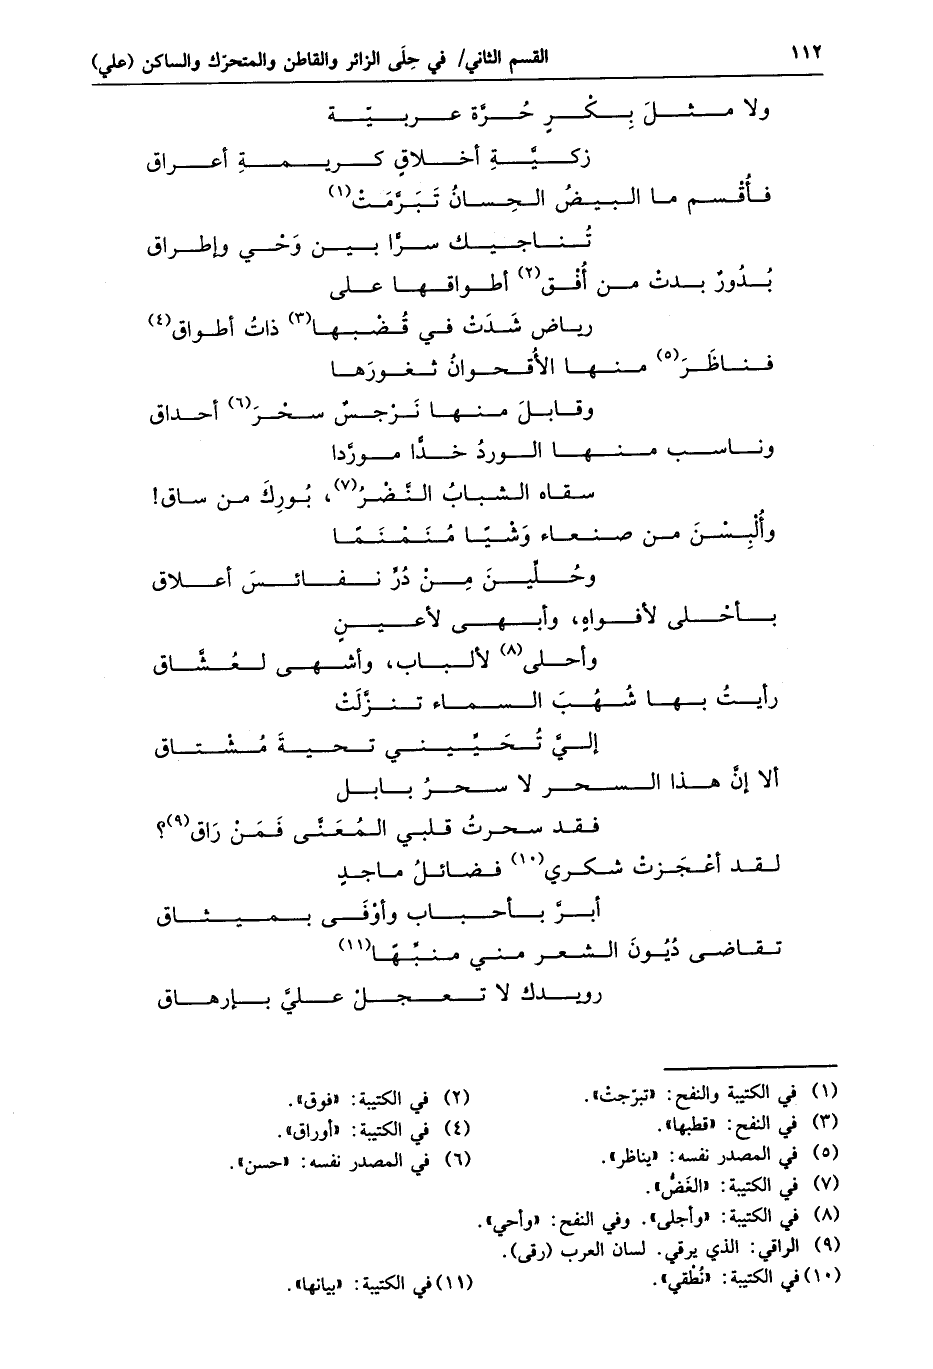 ١١٢
القسم الثاني/ في حِلَى الزائر والقاطن والمتحرّك والساكن (علي)
ولا مثلَ بِكْرٍ حُرَّة عربيّة
زكيَّةِ أخلاقٍ كريمةِ أعراق
فأُقْسم ما البيضُ الحِسانُ تَبَرَّمَتْ(١)
تُناجيك سرًّا بين وَحْي وإطراق
بُدُورٌ بدتْ من أُفْق(٢) أطواقها على
رياض شَدَتْ في قُضْبها(٣) ذاتُ أطواق(٤)
فناظَرَ(٥) منها الأُقحوانُ ثغورَها
وقابلَ منها نَرْجسٌ سحْرَ(٦) أحداق
وناسب منها الوردُ خدًّا مورَّدا
سقاه الشبابُ النَّضْرُ(٧)، بُورِكَ من ساق!
وأُلْبِسْنَ من صنعاء وَشْيًا مُنَمْنَمًا
وحُلِّينَ مِنْ دُرٍّ نفائسَ أعلاق
بأحْلى لأفواهٍ، وأبهى لأعينٍ
وأحلى(٨) لألباب، وأشهى لعُشَّاق
رأيتُ بها شُهُبَ السماء تنزَّلَتْ
إليَّ تُحَيِّيني تحيةَ مُشْتاق
ألا إنَّ هذا السحر لا سحرُ بابل
فقد سحرتْ قلبي المُعَنَّى فَمَنْ رَاق(٩)؟
لقد أعْجَزتْ شكري(١٠) فضائلُ ماجدٍ
أبرَّ بأحباب وأوْفَى بميثاق
تقاضى دُيُونَ الشعر مني منبِّهًا(١١)
رويدك لا تعجلْ عليَّ بإرهاق
(١) في الكتيبة والنفح: «تبرّجتْ».
(٢) في الكتيبة: «فوق».
(٣) في النفح: «قطبها».
(٤) في الكتيبة: «أوراق».
(٥) في المصدر نفسه: «يناظر».
(٦) في المصدر نفسه: «حسن».
(٧) في الكتيبة: «الغَضُّ».
(٨) في الكتيبة: «وأجلى». وفي النفح: «وأحي».
(٩) الراقي: الذي يرقي. لسان العرب (رقى).
(١٠) في الكتيبة: «نُطْقي».
(١١) في الكتيبة: «بيانها».